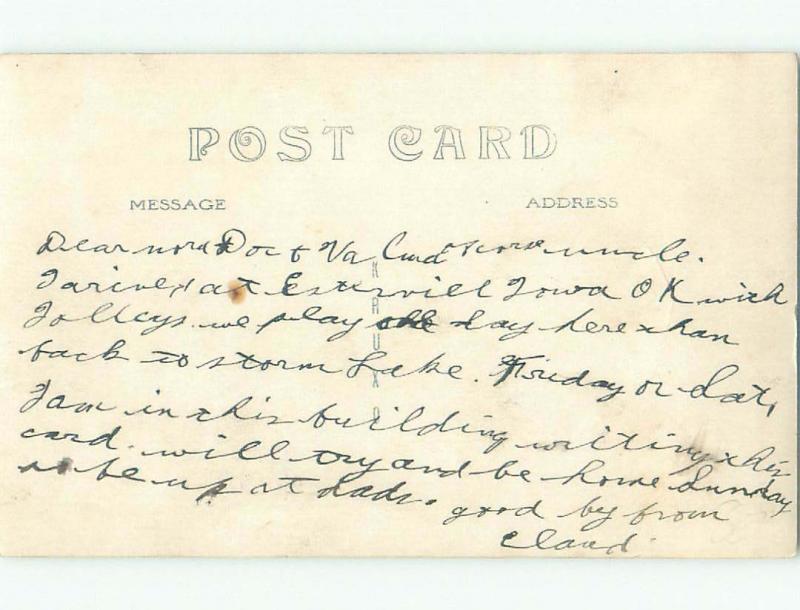 POST CARD
MESSAGE ADDRESS
Dear nora Doc & Va uncle.
I arived at Estervill Iowa OK with
Jolleys we play day here than
back to storm Lake. Friday or Sat,
I am in this building writing this
card. will try and be home Sunday
be up at dads. good by from
Claud.
KRUXO